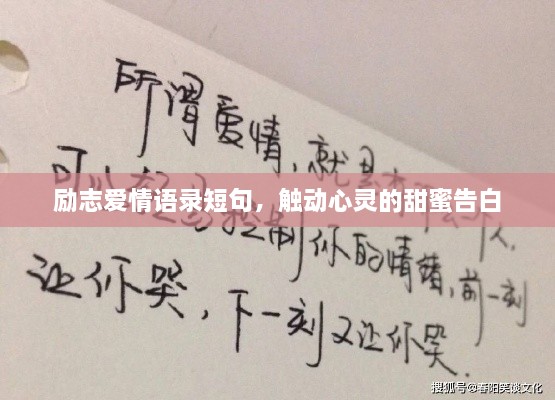 所谓爱情，就是人，
励志爱情语录短句，触动心灵的甜蜜告白
可以控制你的情绪，前一刻
让你哭，下一刻又让你笑.
搜狐号@春阳笑谈文化